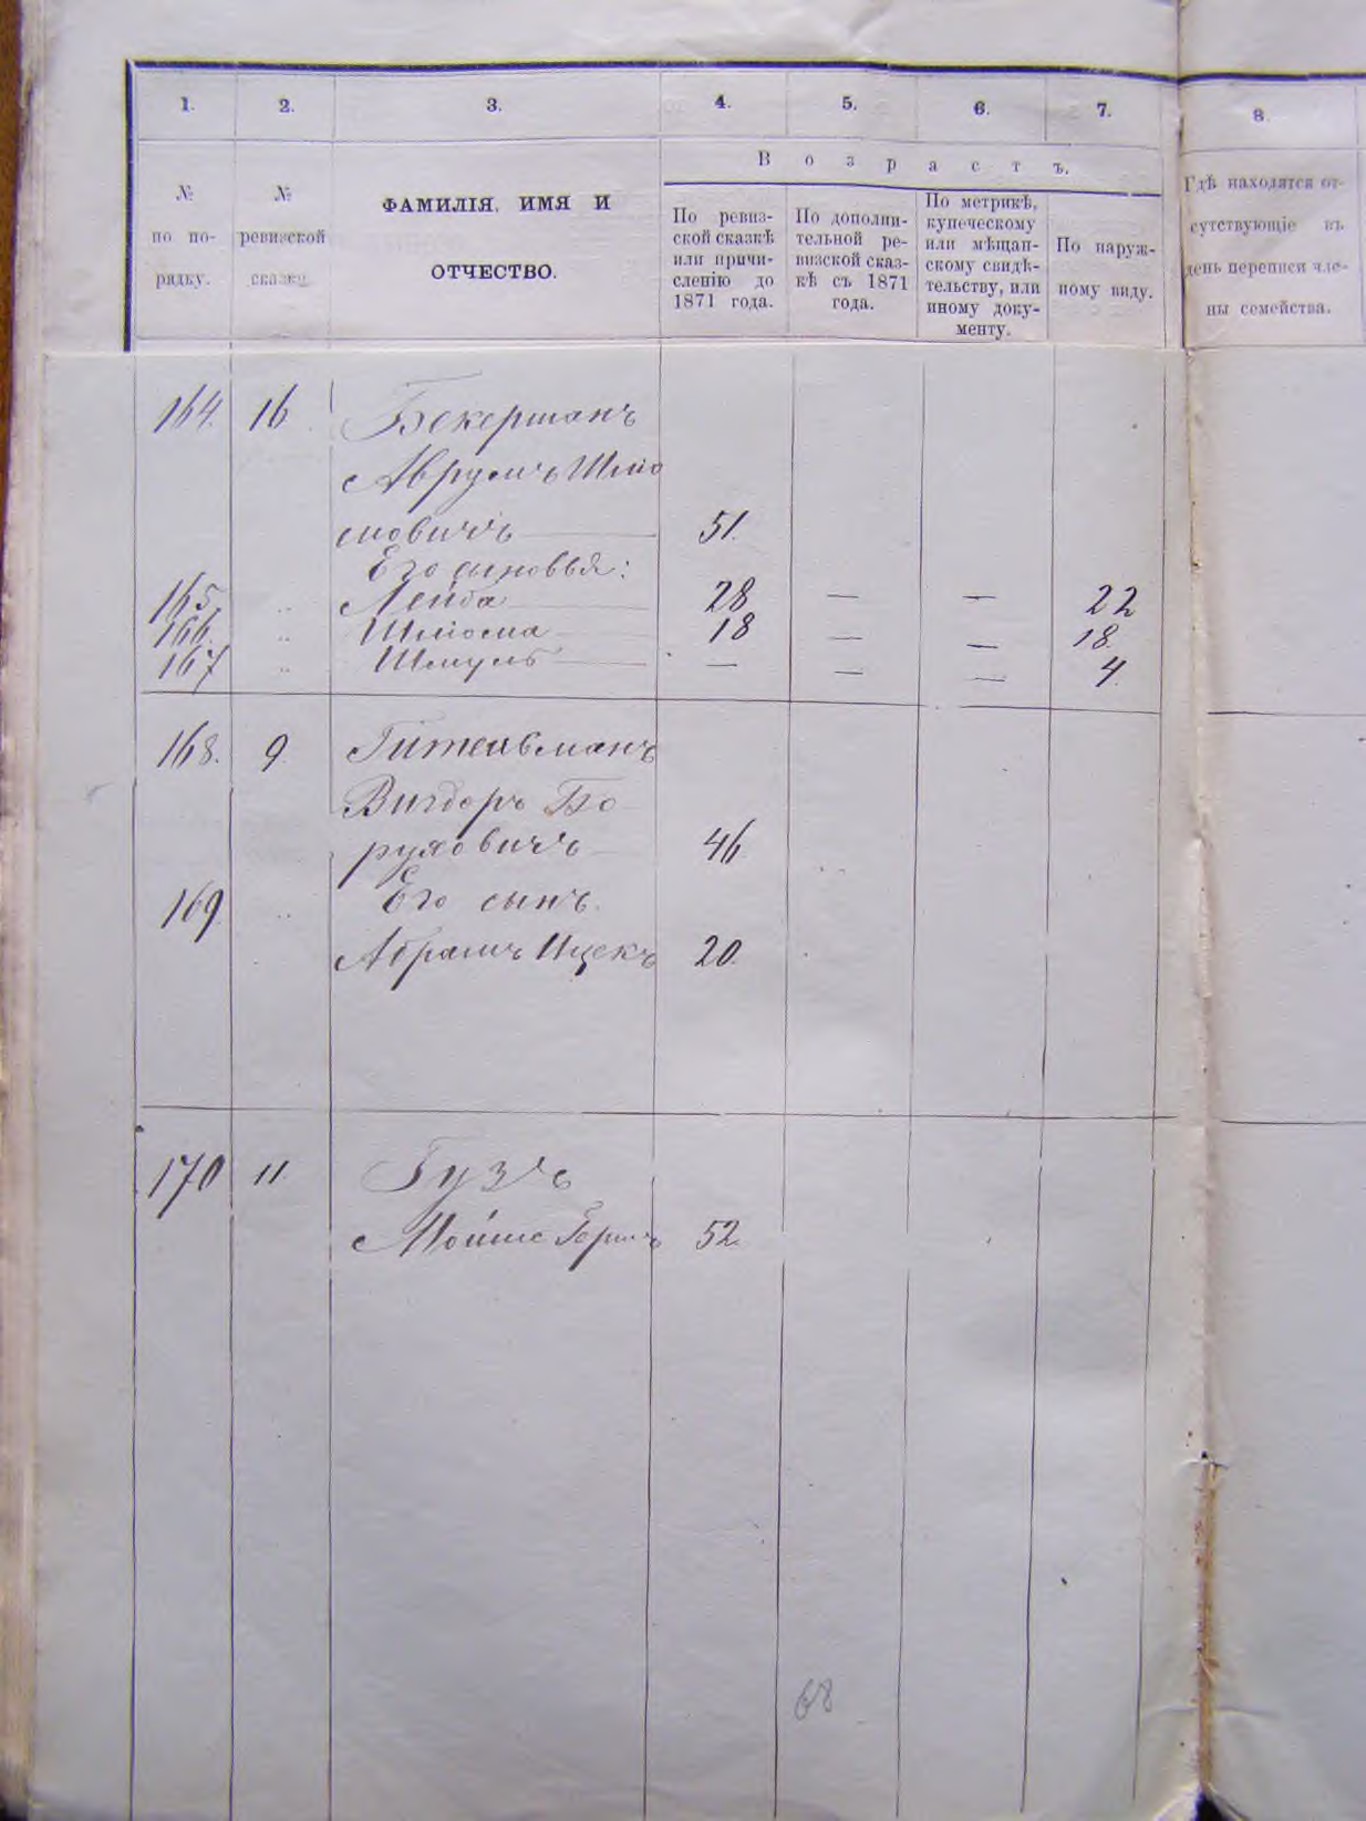 1. 2. 3. 4. 5. 6. 7. 8.
Возрастъ.
№
по по-
рядку.
№
ревизской
сказки.
ФАМИЛІЯ, ИМЯ И
ОТЧЕСТВО.
По ревиз-
ской сказкѣ
или причи-
сленію до
1871 года.
По дополни-
тельной ре-
визской сказ-
кѣ съ 1871
года.
По метрикѣ,
купеческому
или мѣщан-
скому свидѣ-
тельству, или
иному доку-
менту.
По наруж-
ному виду.
Гдѣ находятся от-
сутствующіе въ
день переписи чле-
ны семейства.
164. 16 Бекерманъ
Аврумъ Шлио
мовичъ 51.
Его сыновья:
165. „ Лейба 28 — — 22
166. „ Шліома 18 — — 18.
167 „ Шмуль — — — 4.
168. 9 Гительманъ
Вигдоръ Бо
руховичъ 46
169 „ Его сынъ.
Абрамъ Ицекъ 20.
170 11. Гузъ
Мойше Гершъ 52.
68